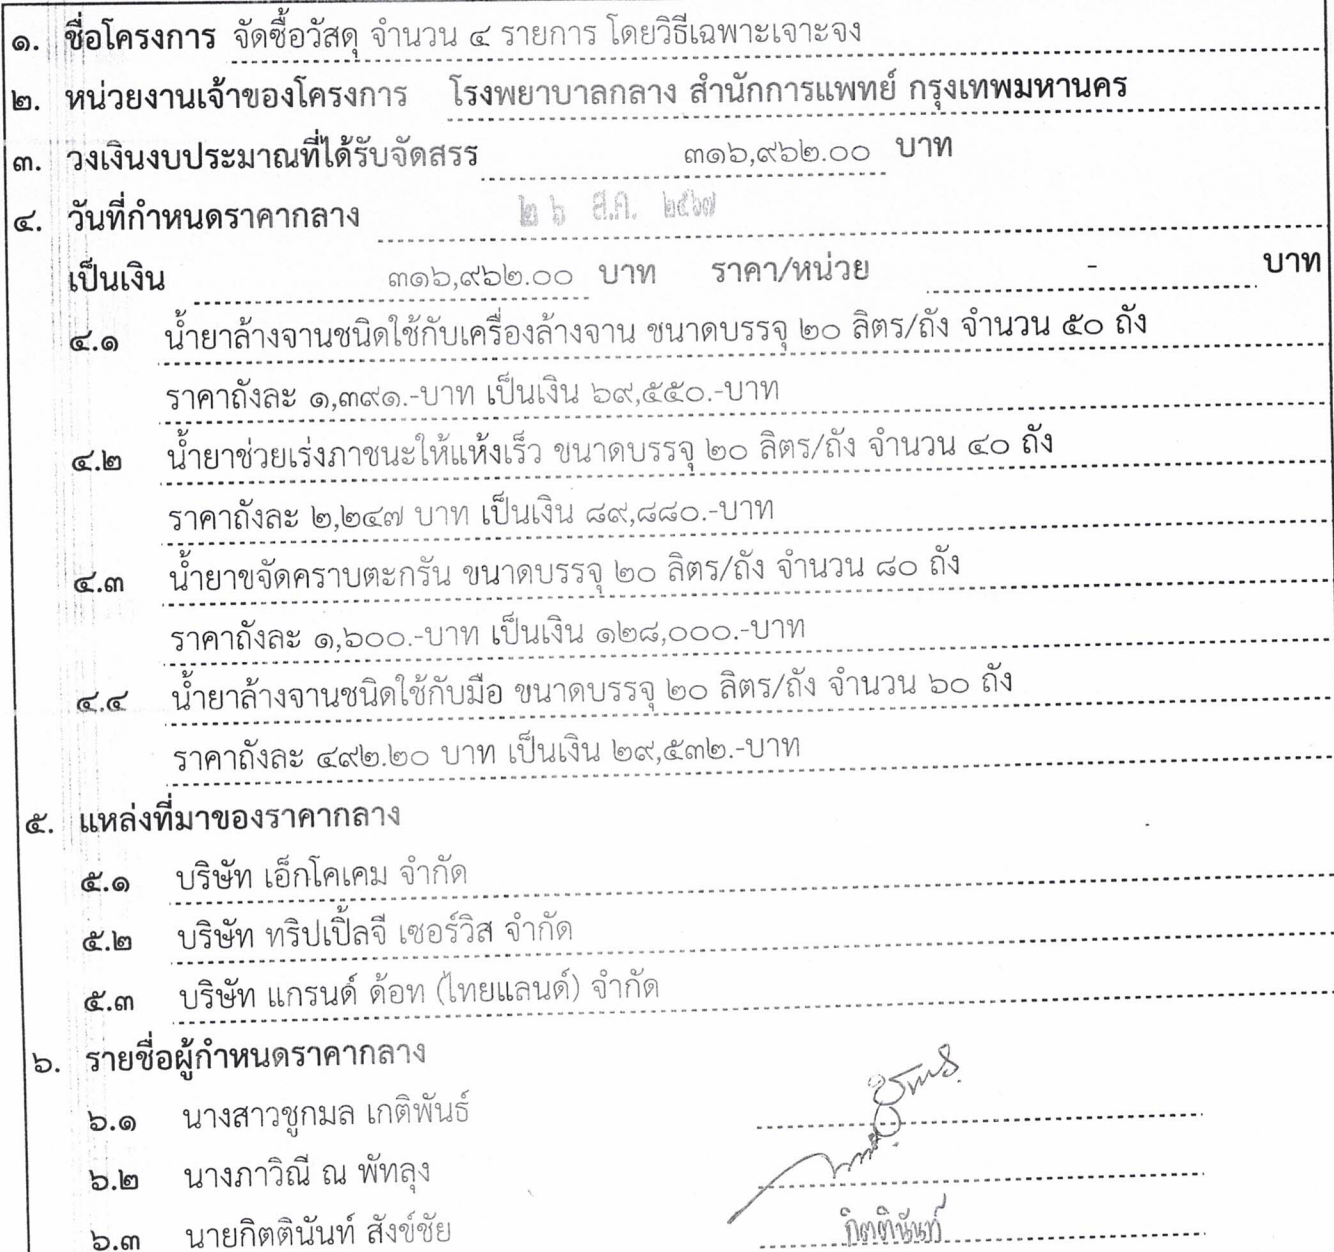 ๑. ชื่อโครงการ จัดซื้อวัสดุ จำนวน ๔ รายการ โดยวิธีเฉพาะเจาะจง
๒. หน่วยงานเจ้าของโครงการ โรงพยาบาลกลาง สำนักการแพทย์ กรุงเทพมหานคร
๓. วงเงินงบประมาณที่ได้รับจัดสรร ๓๑๖,๙๖๒.๐๐ บาท
๔. วันที่กำหนดราคากลาง ๒ ๖ ส.ค. ๒๕๖๗
เป็นเงิน ๓๑๖,๙๖๒.๐๐ บาท ราคา/หน่วย - บาท
๔.๑ น้ำยาล้างจานชนิดใช้กับเครื่องล้างจาน ขนาดบรรจุ ๒๐ ลิตร/ถัง จำนวน ๕๐ ถัง
ราคาถังละ ๑,๓๙๑.-บาท เป็นเงิน ๖๙,๕๕๐.-บาท
๔.๒ น้ำยาช่วยเร่งภาชนะให้แห้งเร็ว ขนาดบรรจุ ๒๐ ลิตร/ถัง จำนวน ๔๐ ถัง
ราคาถังละ ๒,๒๔๗ บาท เป็นเงิน ๘๙,๘๘๐.-บาท
๔.๓ น้ำยาขจัดคราบตะกรัน ขนาดบรรจุ ๒๐ ลิตร/ถัง จำนวน ๘๐ ถัง
ราคาถังละ ๑,๖๐๐.-บาท เป็นเงิน ๑๒๘,๐๐๐.-บาท
๔.๔ น้ำยาล้างจานชนิดใช้กับมือ ขนาดบรรจุ ๒๐ ลิตร/ถัง จำนวน ๖๐ ถัง
ราคาถังละ ๔๙๒.๒๐ บาท เป็นเงิน ๒๙,๕๓๒.-บาท
๕. แหล่งที่มาของราคากลาง
๕.๑ บริษัท เอ็กโคเคม จำกัด
๕.๒ บริษัท ทริปเปิ้ลจี เซอร์วิส จำกัด
๕.๓ บริษัท แกรนด์ ด้อท (ไทยแลนด์) จำกัด
๖. รายชื่อผู้กำหนดราคากลาง
๖.๑ นางสาวชูกมล เกติพันธ์
๖.๒ นางภาวิณี ณ พัทลุง
๖.๓ นายกิตตินันท์ สังข์ชัย กิตตินันท์